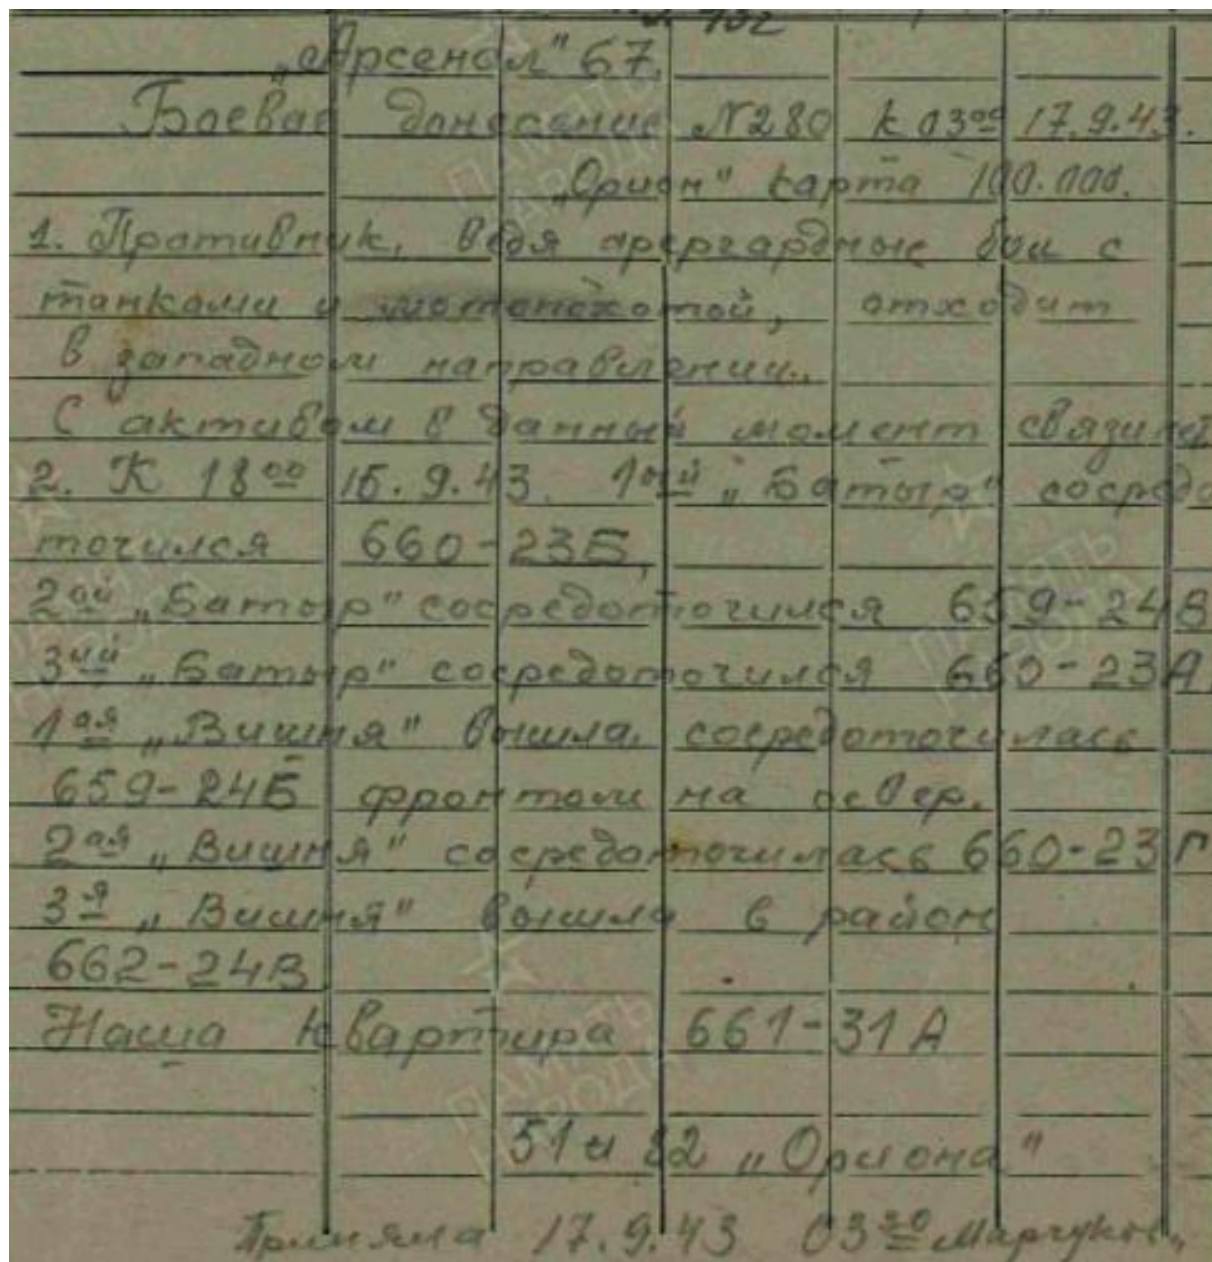 43г
„Арсенал" 67.
Боевое донесение №280 к 03⁰⁰ 17.9.43.
„Орион" карта 100.000.
1. Противник, ведя арергардные бои с
танками и мотопехотой, отходит
в западном направлении.
С активом в данный момент связи нет
2. К 18⁰⁰ 15.9.43. 1ый „Батыр" сосредо
точился 660-23Б,
2ой „Батыр" сосредоточился 659-24В
3ий „Батыр" сосредоточился 660-23А,
1ая „Вишня" вышла, сосредоточилась
659-24Б фронтом на север.
2ая „Вишня" сосредоточилась 660-23Г
3я „Вишня" вышла в район
662-24В
Наша квартира 661-31А
51 и 82 „Ориона"
Приняла 17.9.43 03³⁰
ПАМЯТЬ НАРОДА